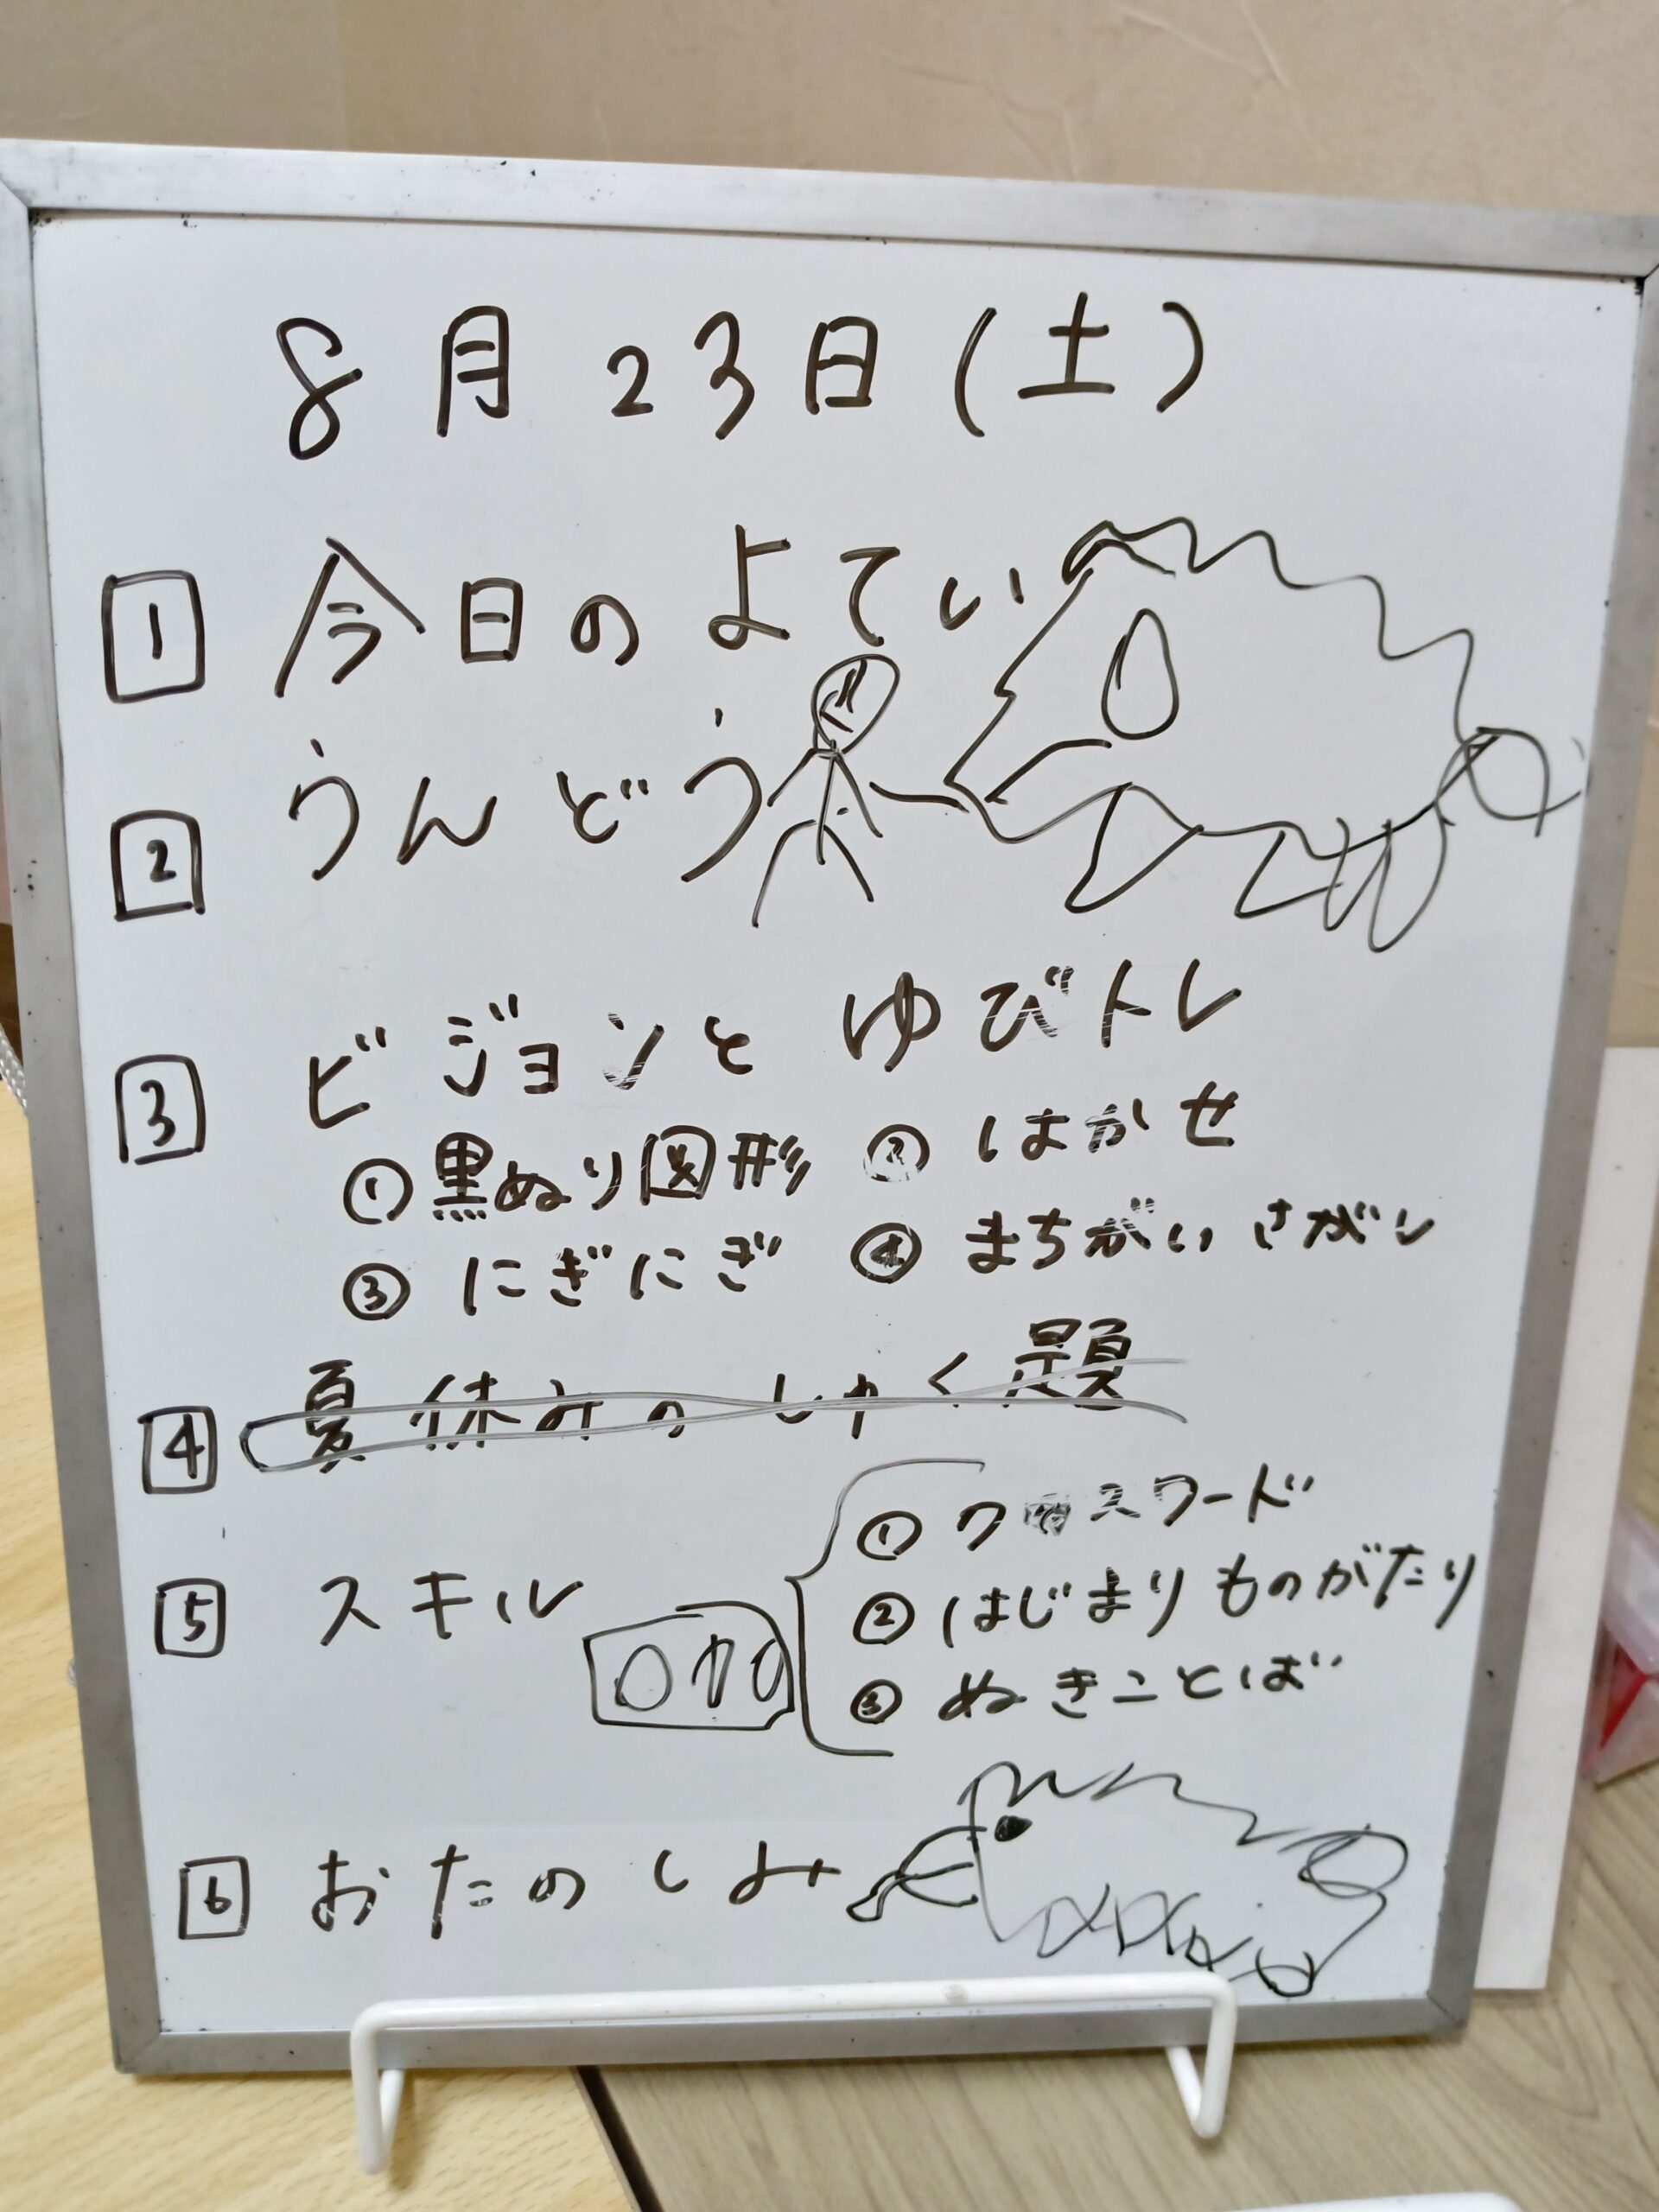 8月23日(土)
1 今日のよてい
2 うんどう
3 ビジョンとゆびトレ
①黒ぬり図形 ②はかせ
③にぎにぎ ④まちがいさがし
4 夏休みのしゅく題
5 スキル
①クロスワード
②はじまりものがたり
③ぬきことば
6 おたのしみ